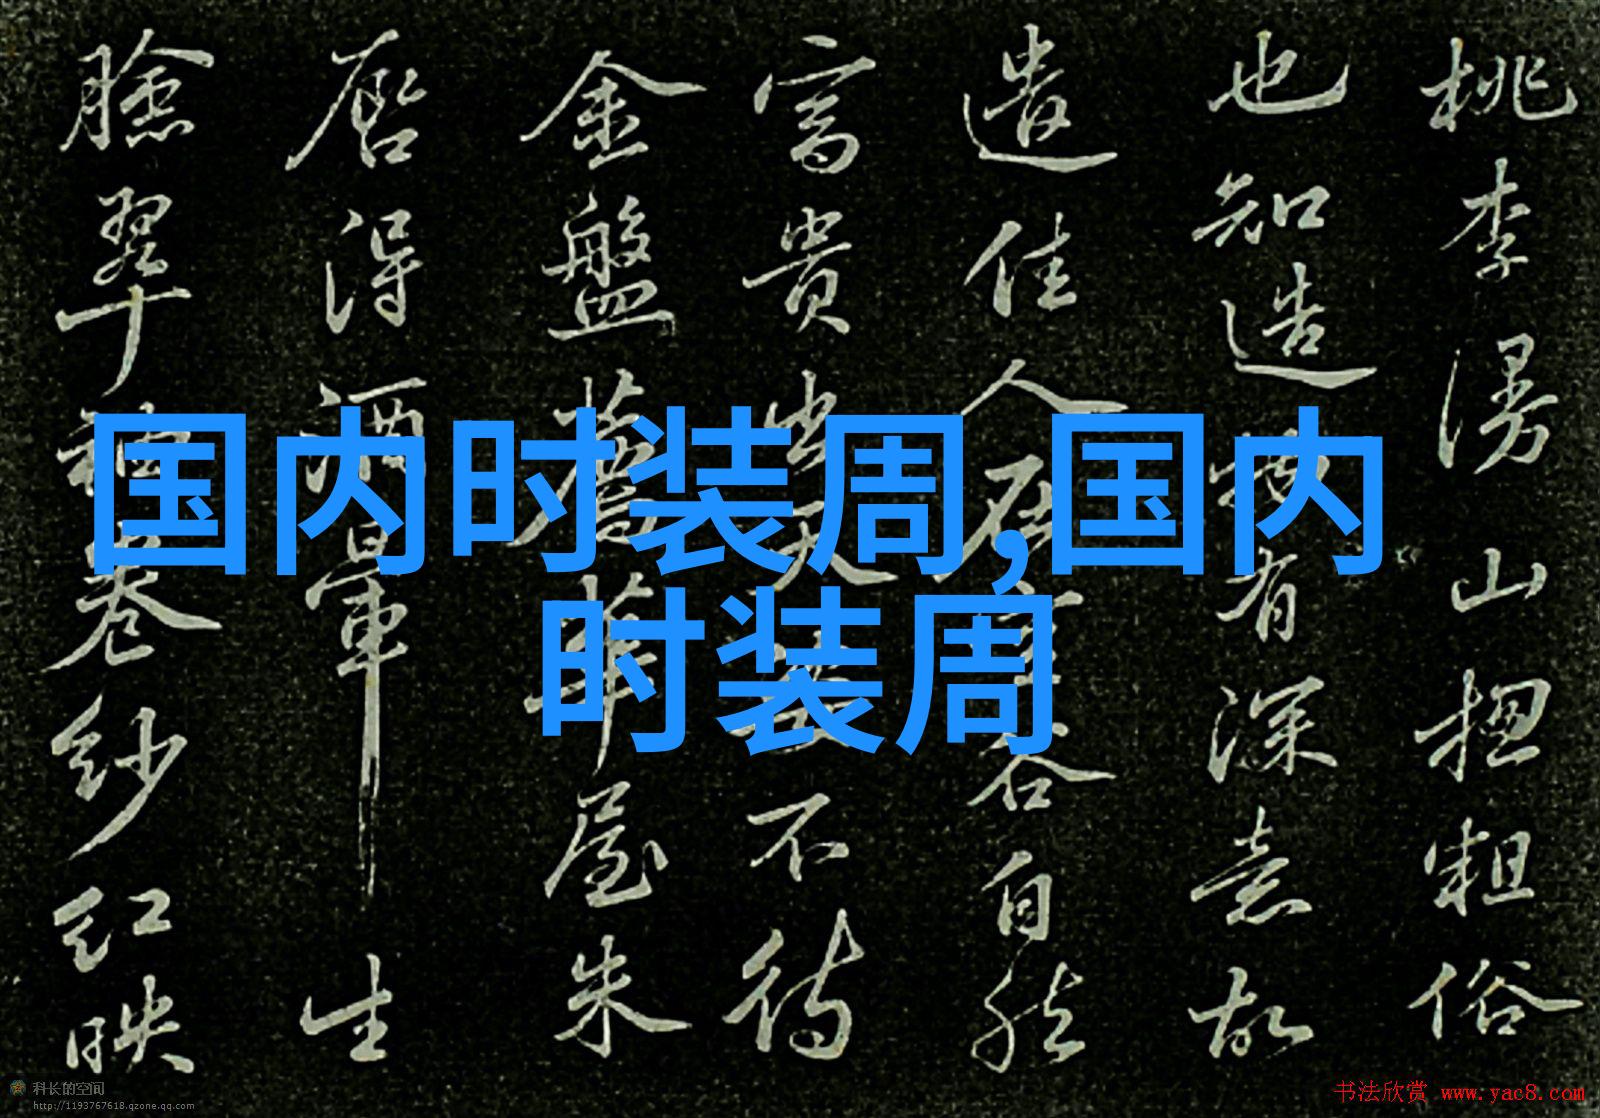 桃李漫山揔粗俗
也知造物有深意故
遣佳人在空谷自然
富貴出天姿不待
金盤薦華屋朱
唇得酒暈生
臉翠袖卷紗紅映
国内时装周,国内
时装周
科长的空间
http://1193767618.qzone.qq.com
书法欣赏 www.yac8.com